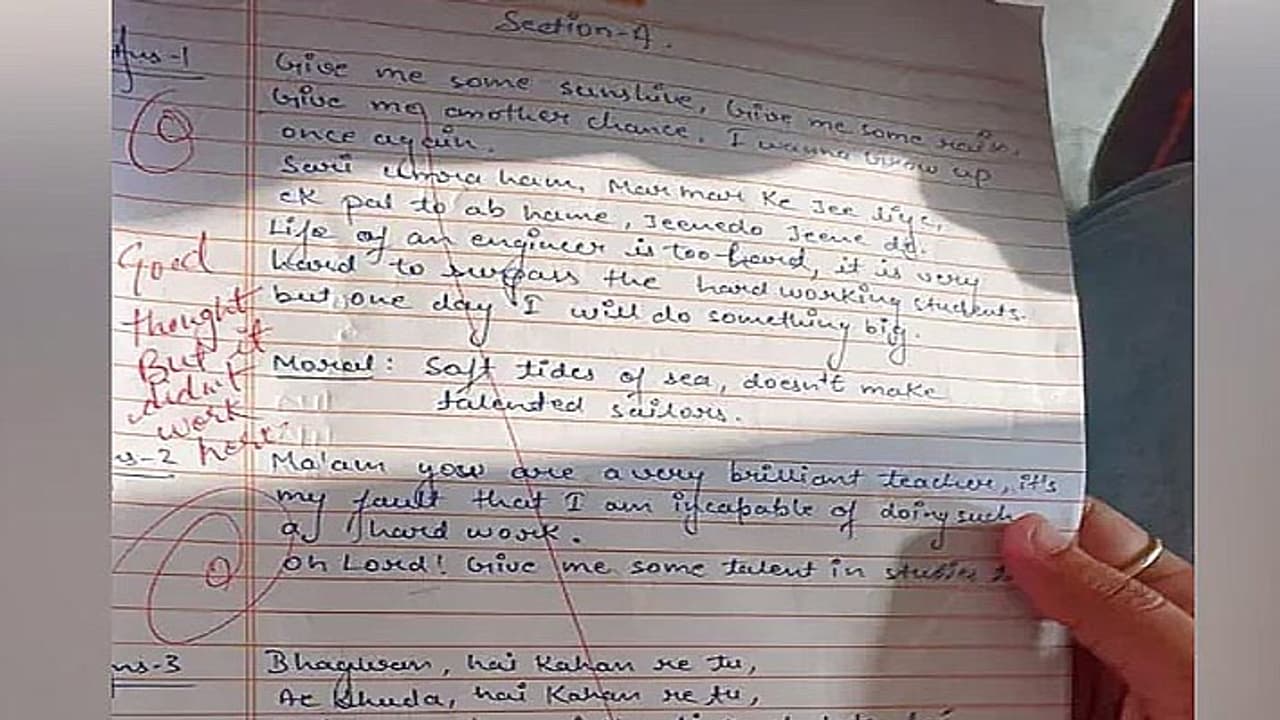 Section-A.
Ans-1
Give me some sunshine, Give me some rain,
Give me another chance, I wanna Grow up
once again.
Sari Umra ham, Mar mar Ke Jee liye,
ek pal to ab hame, Jeenedo Jeene do.
Life of an engineer is too hard, it is very
hard to surpass the hard working students.
but one day I will do something big.
Moral: Soft tides of sea, doesn't make
talented sailors.
0
Good
thought
But it
didn't
work
here
ns-2
Ma'am you are a very brilliant teacher, it's
my fault that I am incapable of doing such
a hard work.
Oh Lord! Give me some talent in studies
0
ns-3
Bhagwan, hai Kahan re tu,
Ae Khuda, hai Kahan re tu,